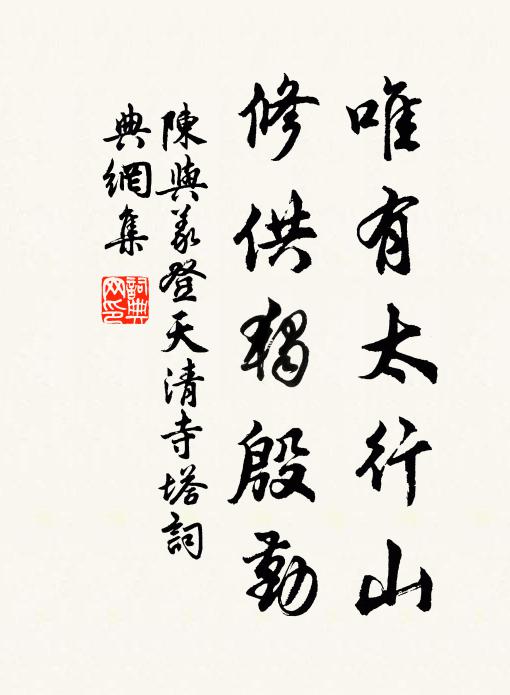 唯有太行山
修供獨殷勤
陳與義登天清寺塔詞
典網集
詞典
网印